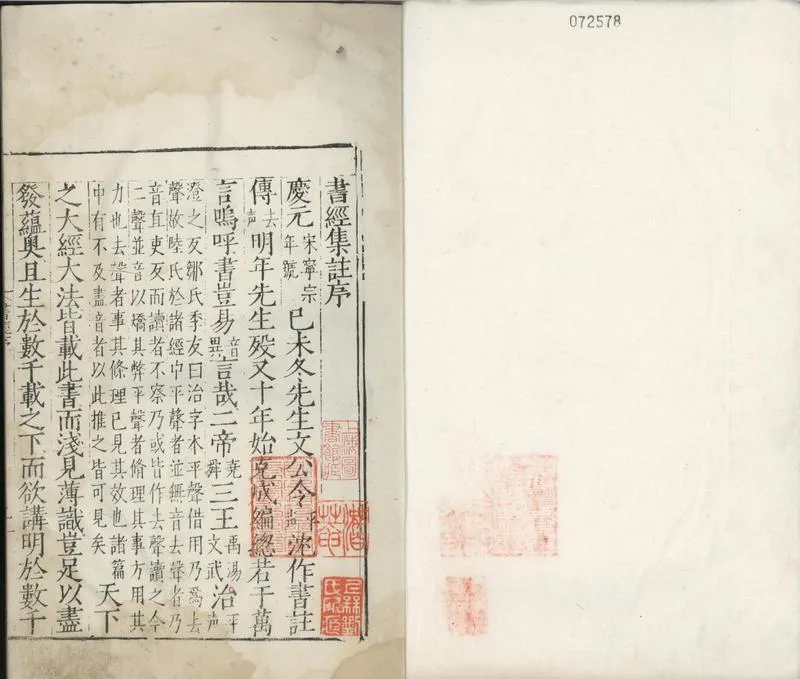 072578
書經集註序
慶元宋寧宗年號己未冬先生文公令平聲沈作書註
傳去声明年先生歿又十年始克成編緫若干萬
言嗚呼書豈易音異言哉二帝堯舜三王禹湯文武治平声
澄之反鄒氏季友曰治字本平聲借用乃爲去
聲故陸氏於諸經中平聲者並無音去聲者乃
音直吏反而讀者不察乃或皆作去聲讀之今
二聲並音以矯其弊平聲者脩理其事方用其
力也去聲者事其條理已見其效也諸篇
中有不及盡音者以此推之皆可見矣
天下
之大經大法皆載此書而淺見薄識豈足以盡
發蘊奧且生於數千載之下而欲講明於數千
上海圖書館藏